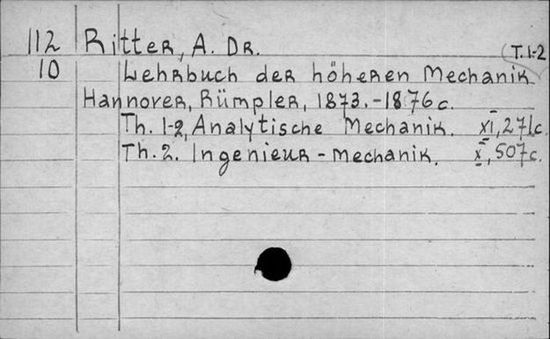 112 Ritter, A. Dr.
(T. 1-2
10 Lehrbuch der höheren Mechanik
Hannover, Rümpler, 1873.-1876 c.
Th. 1-2, Analytische Mechanik. XI, 271 c.
Th. 2. Ingenieur - Mechanik. X, 507 c.